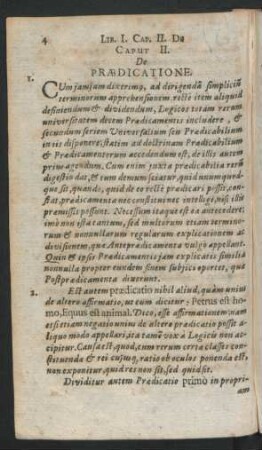 4 LIB. I. CAP. II. DE
CAPUT II.
De
PRÆDICATIONE.
1.
CUm jam jam dixerimꝰ, ad dirigendã simpliciũ
terminorum apprehensionem rectè item aliquid
definiendum & dividendum, Logicos totam rerum
universitatem decem Prædicamentis includere, &
secundum seriem Universalium seu Prædicabilium
in iis disponere, statim ad doctrinam Prædicabilium
& Prædicamentorum accedendum est, de illis autem
primo agendum. Cum enim juxta prædicabilia rerũ
digestio dat, & tum demum sciatur, quid unumquod-
que sit, quando, quid de eo rectè prædicari possit, con-
stat, prædicamenta nec constitui nec intelligi, nisi illis
præmissis possunt. Necessum itaque est ea antecedere;
imò non ista tantum, sed multorum etiam termino-
rum & nonnullarum regularum explicationem ac
divisionem, quæ Antepræ dicamenta vulgò appellant.
Quin & ipsis Prædicamentis jam explicatis similia
nonnulla propter eundem finem subjici oportet, quæ
Postprædicamenta dixerunt.
2. Est autem prædicatio nihil aliud, quàm unius
de altero affirmatio, ut cum dicitur; Petrus est ho-
mo, Equus est animal. Dico, esse affirmationem: nam
etsi etiam negatio unius de altero prædicatio possit a-
liquo modo appellari, ita tamẽ vox à Logicis non ac-
cipitur. Causa est, quod, cum rerum certa classes con-
stituenda & rei cujusq; ratio ob oculos ponenda est,
non exponitur, quid res non sit, sed quid sit.
Dividitur autem Prædicatio primo in propri-
am